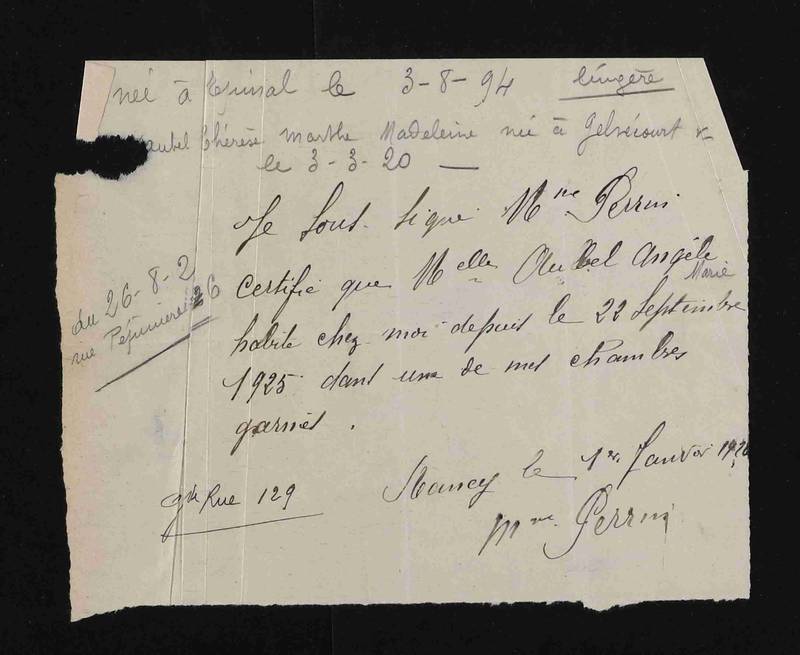 née à Epinal le 3-8-94 lingère
Aubel Thérèse Marthe Madeleine née à Gelvécourt
le 3-3-20 —
Je sous signé Mme Perrin
certifie que Melle Aubel Angèle
Marie
habite chez moi depuis le 22 Septembre
1925 dans une de mes chambres
garnies.
du 26-8-2
rue Pépinière 26
Nancy le 1er Janvier 1926
gde Rue 129
Mme Perrin